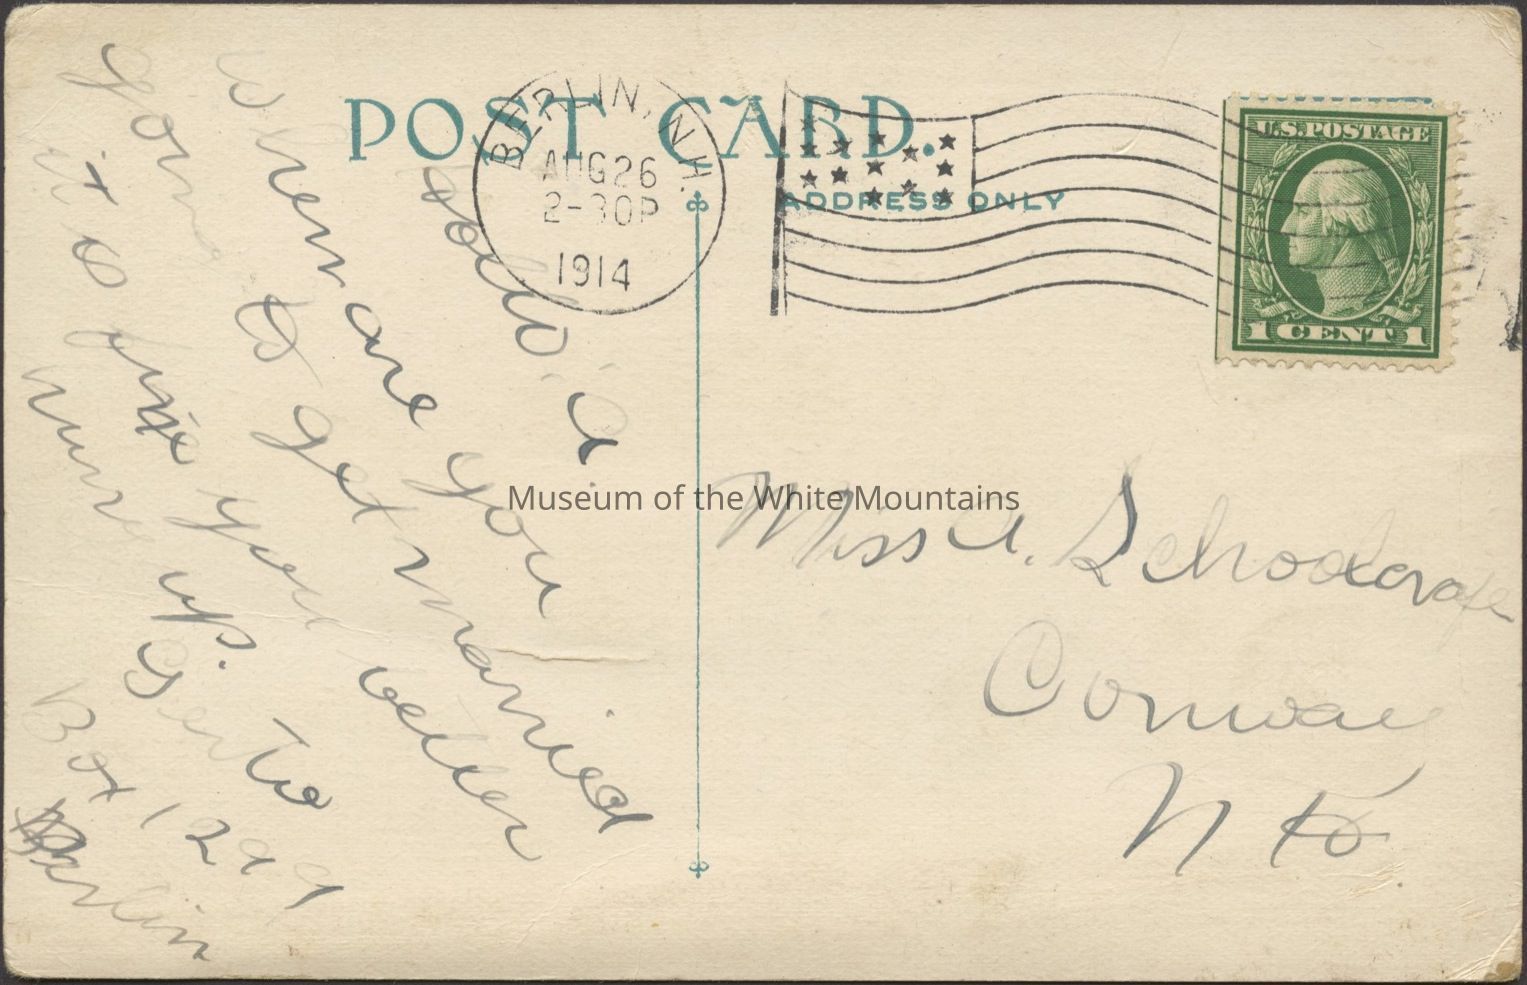 POST CARD.
ADDRESS ONLY
BERLIN, N.H.
AUG 26
2-30P
1914
U.S. POSTAGE
1 CENT 1
Hello A.
when are you
going to get married
it is fine you better
hury up.
Box 1299
Berlin
Miss A. Schoolcraft
Conway
N H
Museum of the White Mountains